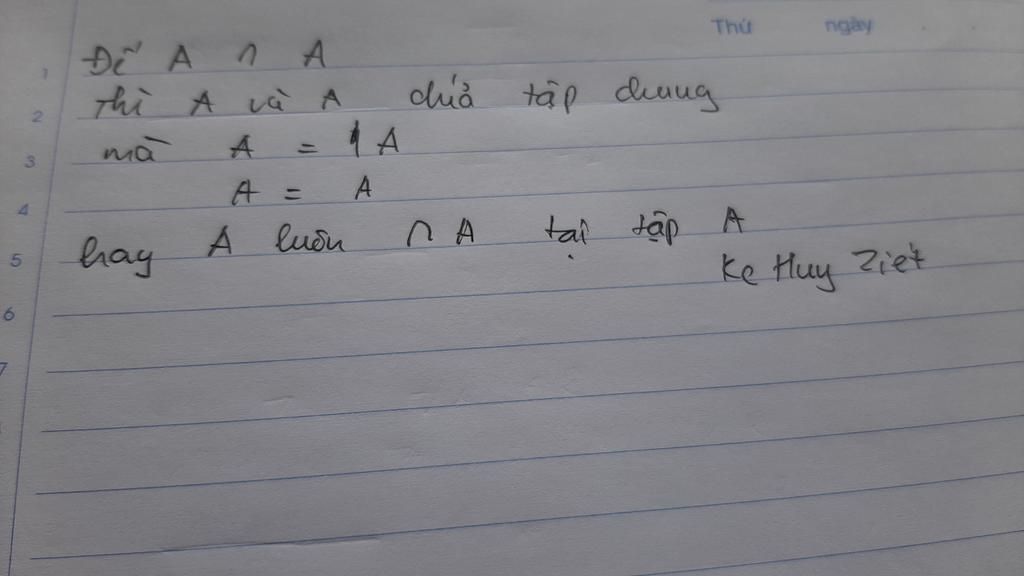 Thứ ngày
1 Để A ∩ A
2 thì A và A chứa tập chung
3 mà A = 1 A
4 A = A
5 hay A luôn ∩ A tại tập A
Ke Huy Ziet
6
7